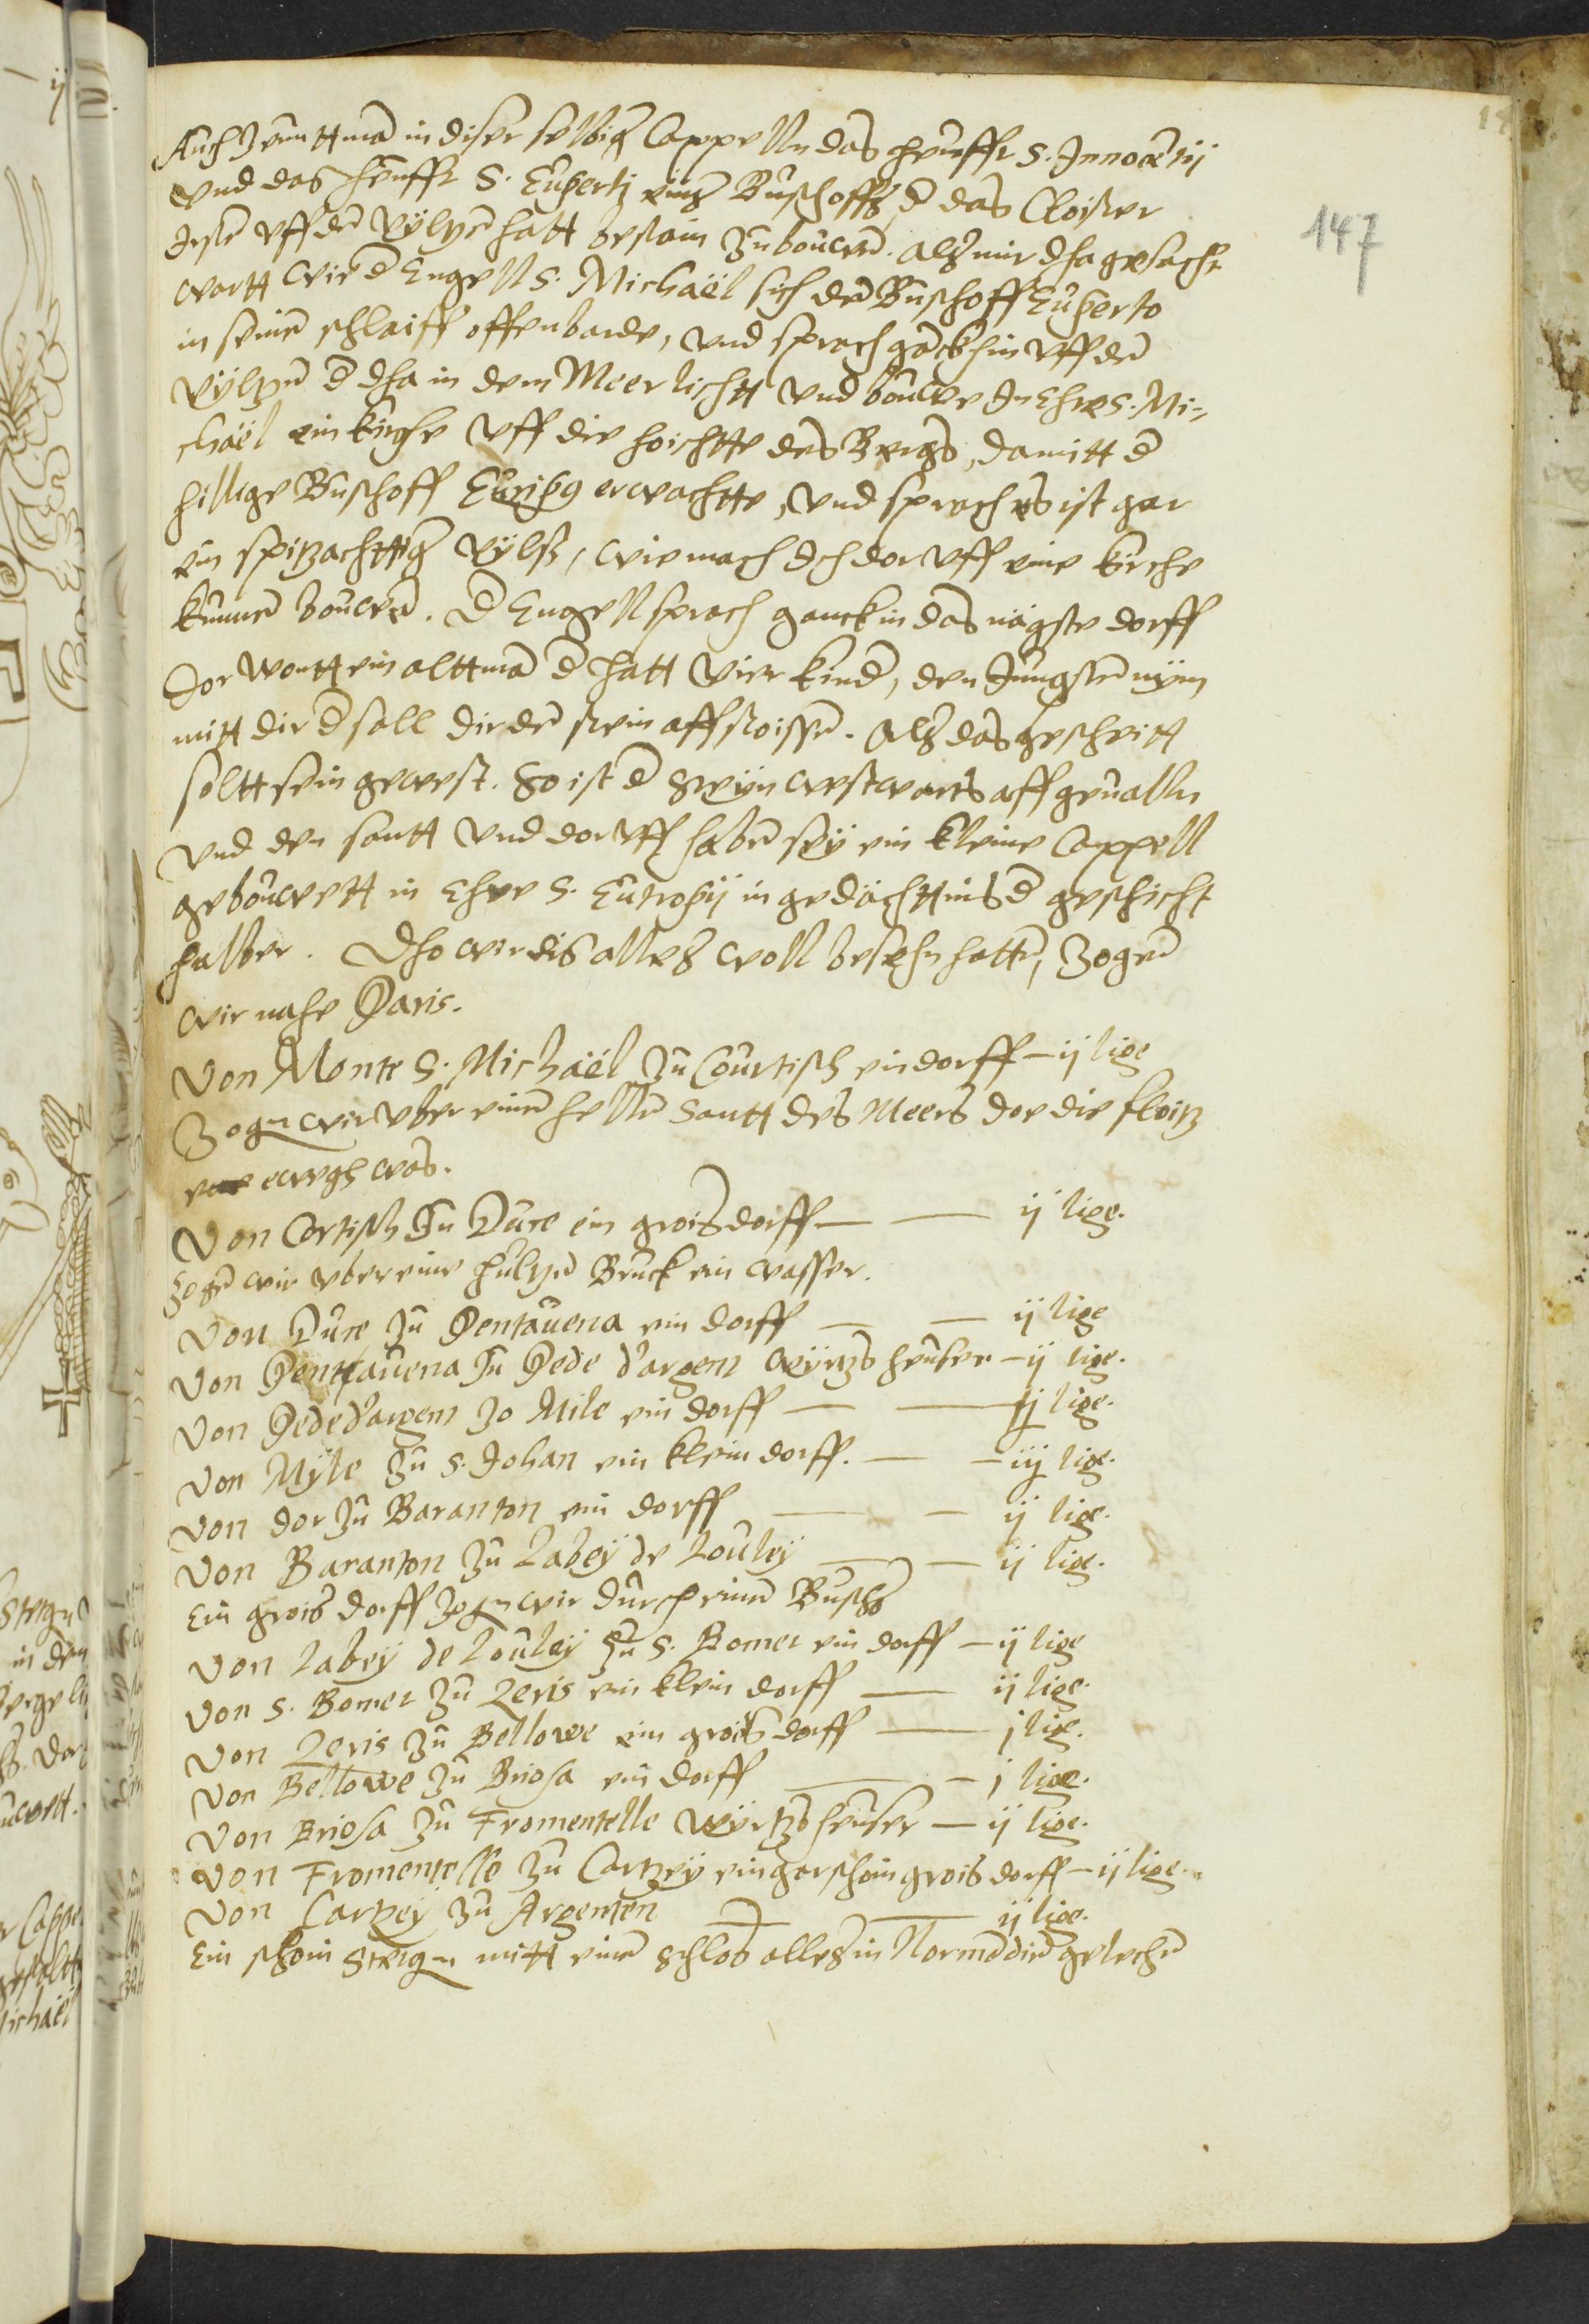 147
Auch zeuntt ma in diser selbig Cappelln das heufft S. Innocetij
und das heufft S. Euperti einß Buschoffß d das Cloister
irste uff de vÿltze hatt bestain zu bouwe. Alß mir dha gesacht
wartt wie d Engell S. Michaël sich de Buschoff Euperto
in seine schlaiff offenbarde, und sprach ganck hin uff de
vÿltze d dha in dem Meer lichtt und bouwe In Ehre S. Mi-
chaël ein kirche uff die hoichtte des Bergs, da mitt d
hillige Buschoff Euripg erwachtte, und sprach es ist gar
ein spitzachttig vÿlß, wie mach Ich dor uff eine kirche
kunne bouwe. D Engell sprach ganck in das nägste dorff
dor wontt ein altt ma d hatt vier kind, den Jungste nÿm
mitt dir d sall dir de stein aff stoisse. Alß das geschiitt
soltt sein gewest. So ist d steÿn westwarts aff geuallen
und den santt und dor uff habe seÿ ein kleine Cappell
gebouwett in Ehre S. Eutropij in gedächttnis d geschicht
halber. Dho wir dis alleß woll besehn hatte, zoge
wir nahe Paris.
Von Monte S. Michaël zu Courtisch ein dorff — ij lige
Zogen wir uber eine helle Santt des Meers dor die floitz
ewegh was.
Von Cortisch zu Duce ein grois dorff — — ij lige.
Zoge wir uber eine hultze Bruck ein wasser.
Von Duce zu Pentauena ein dorff — — ij lige
Von Pentauena zu Pede d'argent wÿrtzs heuser — ij lige.
Von Pede d'argent zo Mile ein dorff — — ij lige.
Von Mÿle zu S. Johan ein klein dorff. — — iij lige.
Von dor zu Baranton ein dorff — — ij lige.
Von Baranton zu Labeÿ de Louleÿ — — ij lige.
Ein grois dorff zogen wir durch eine Busch
Von Labeÿ de Louleÿ zu S. Bomer ein dorff — ij lige
Von S. Bomer zu Leris ein klein dorff — ij lige.
Von Leris zu Bellowe ein grois dorff — j lige.
Von Bellowe zu Briosa ein dorff — — j lige.
Von Briosa zu Fromentelle wÿrtzs heuser — ij lige.
Von Fromentelle zu Cartzeÿ ein gar schoin grois dorff — ij lige.
Von Cartzeÿ zu Argenten — — ij lige.
Ein schoin Stetgen mitt eine schlos alleß in Normadie geleche